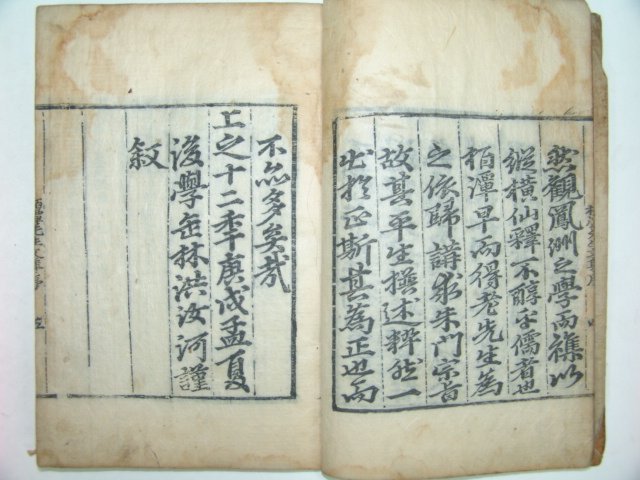 然觀鳳洲之學而襍以
縱橫仙釋不醇乎儒者也
栢潭早而得老先生爲
之依歸講求朱門宗旨
故其平生撰述粹然一
出於正斯其為正也而
不亦多矣哉
上之十二年庚戌孟夏
後學缶林洪汝河謹
叙